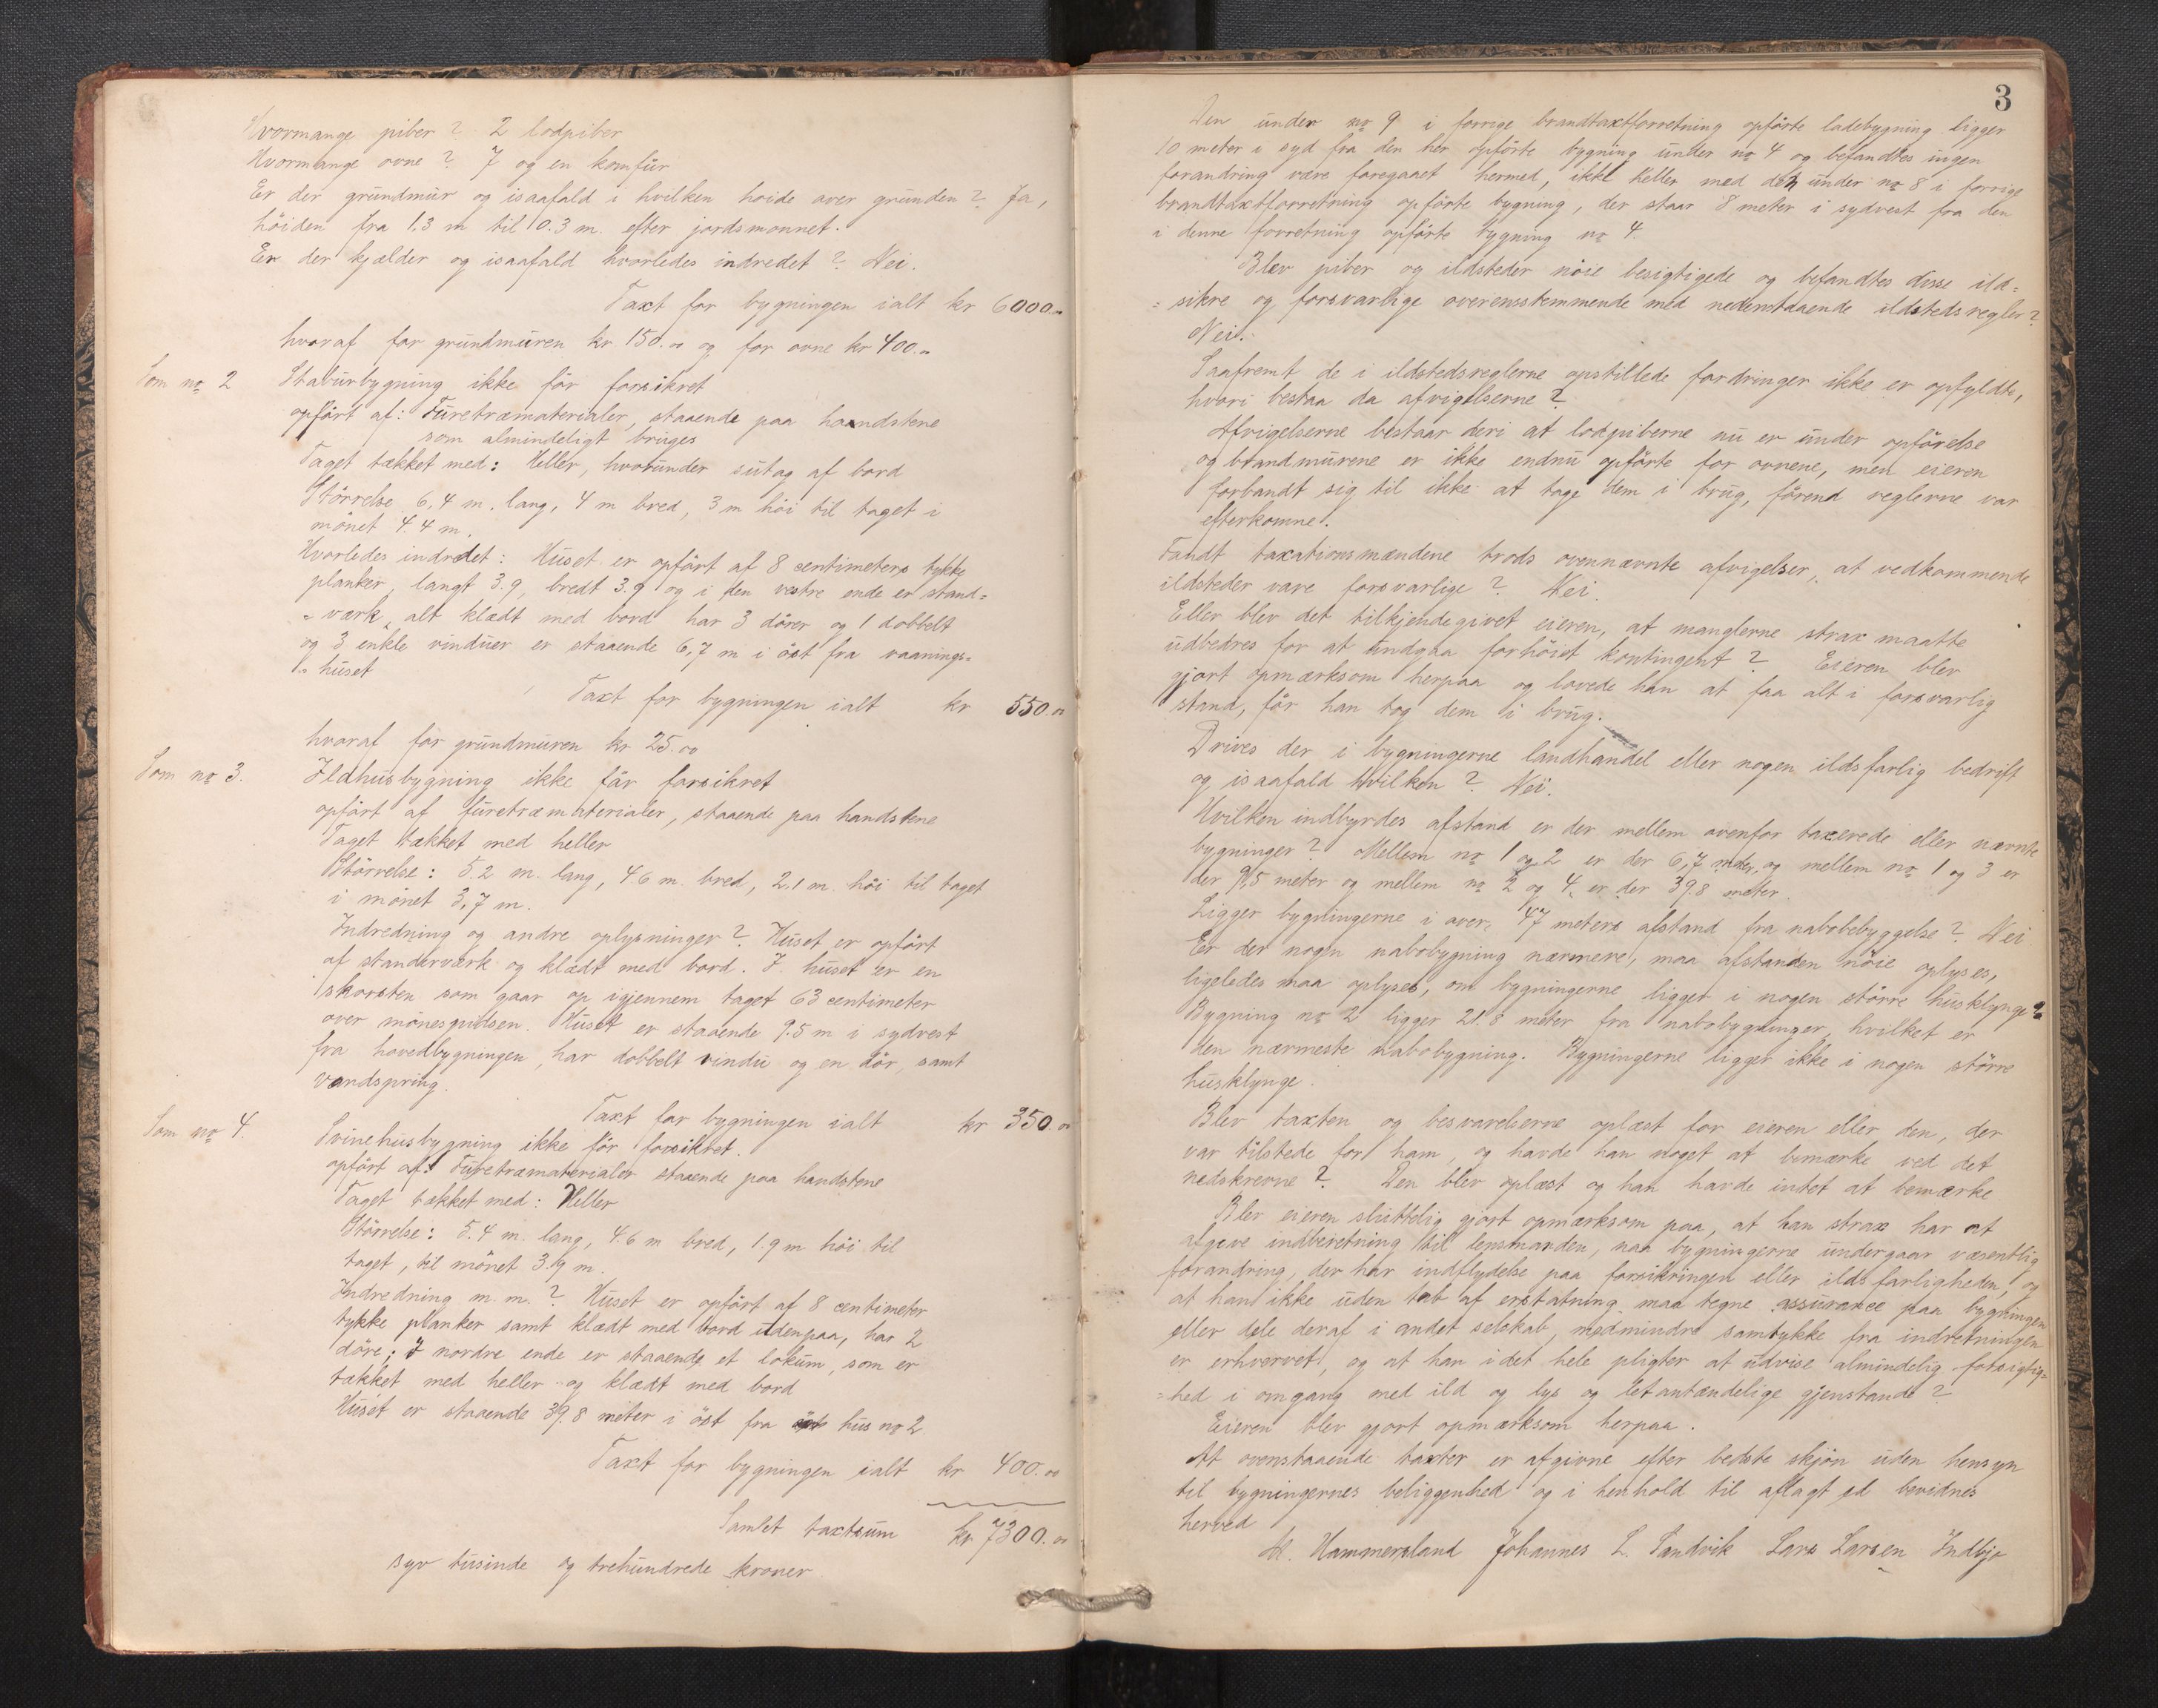 Hvormange piber? 2 lodpiber
Hvormange ovne? 7 og en komfür
Er der gründmür og isaafald i hvilken høide over gründen? Ja,
höiden fra 1.3 m til 0.3 m. efter jordsmonnet.
Er der kjælder og isaafald hvorledes indredet? Nei.
Taxt for bygningen ialt kr 6000.00
hvoraf for gründmüren kr 150.00 og for ovne kr 400.00
Som no 2 Stabürbygning ikke för forsikret
opfört af: Füretræmaterialer, staaende paa haandstene
som almindeligt brüges
Taget tækket med: Heller, hvoründer sütag af bord
Störrelse 6,4 m. lang, 4 m bred, 3 m höi til taget i
mönet 4.4 m.
Hvorledes indredet: Hüset er opfört af 8 centimeters tykke
planker, langt 3.9, bredt 3.9 og i den vestre ende er stand=
værk, alt klædt med bord har 3 dörer og 1 dobbelt
og 3 enkle vindüer er staaende 6,7 m i öst fra vaanings=
hüset
Taxt for bygningen ialt kr 550.00
hvoraf for gründmüren kr 25.00
Som no 3. Ildhüsbygning ikke för forsikret
opfört af füretræmaterialer, staaende paa handstene
Taget tækket med heller
Störrelse: 5.2 m. lang, 4.6 m. bred, 2.1 m. höi til taget
i mönet 3,7 m.
Indredning og andre oplysninger? Hüset er opfört
af standerværk og klædt med bord. I hüset er en
skorsten som gaar op igjennem taget 63 centimeter
over mönespidsen. Hüset er staaende 9.5 m i sydvest
fra hovedbygningen, har dobbelt vindü og en dör, samt
vandspring.
Taxt for bygningen ialt kr 350.00
Som no 4. Svinehüsbygning ikke för forsikret.
opfört af: Füretræmaterialer staaende paa handstene
Taget tækket med: Heller
Störrelse: 5.4 m. lang, 4.6 m bred, 1.9 m höi til
taget, til mönet 3.9 m.
Indredning m. m.? Hüset er opfört af 8 centimeter
tykke planker samt klædt med bord üdenpaa, har 2
döre; I nordre ende er staaende et loküm, som er
tækket med heller og klædt med bord
Hüset er staaende 39.8 meter i öst fra hüs no 2
Taxt for bygningen ialt kr 400.00
Samlet taxtsüm kr 7300.00
syv tüsinde og trehündrede kroner
3
Den ünder no 9 i forrige brandtaxtforretning opförte ladebygning ligger
10 meter i syd fra den her opförte bygning ünder no 4 og befandtes ingen
forandring være foregaaet hermed, ikke heller med den ünder no 8 i forrige
brandtaxtforretning opförte bygning, der staar 8 meter i sydvest fra den
i denne forretning opförte bygning no 4.
Blev piber og ildsteder nöie besigtigede og befandtes disse ild=
=sikre og forsvarlige overensstemmende med nedenstaaende ildstedsregler?
Nei.
Saafremt de i ildstedsreglerne opstillede fordringer ikke er opfyldte,
hvori bestaa da afvigelserne?
Afvigelserne bestaar deri at lodpiberne nü er ünder opförelse
og brandmürene er ikke endnü opförte for ovnene, men eieren
forbandt sig til ikke at tage dem i brüg, förend reglerne var
efterkomne.
Fandt taxationsmændene trods ovennævnte afvigelser, at vedkommende
ildsteder vare forsvarlige? Nei.
Eller blev det tilkjendegivet eieren, at manglerne strax maatte
üdbedres for at ündgaa forhöiet kontingent? Eieren blev
gjort opmærksom herpaa og lovede han at faa alt i forsvarlig
stand, för han tog dem i brüg.
Drives der i bygningerne landhandel eller nogen ildsfarlig bedrift
og isaafald hvilken? Nei.
Hvilken indbyrdes afstand er der mellem ovenfor taxerede eller nævnte
bygninger? Mellem no 1 og 2 er der 6,7 meter, og mellem no 1 og 3 er
der 9,5 meter og mellem no 2 og 4, er der 39.8 meter.
Ligger bygningerne i over 47 meters afstand fra nabobebyggelse? Nei
Er der nogen nabobygning nærmere, maa afstanden nöie oplyses,
ligeledes maa oplyses, om bygningerne ligger i nogen större hüsklynge?
Bygning no 2 ligger 21.8 meter fra nabobygninger, hvilket er
den nærmeste nabobygning. Bygningerne ligger ikke i nogen större
hüsklynge.
Blev taxten og besvarelserne oplæst for eieren eller den, der
var tilstede for ham, og havde han noget at bemærke ved det
nedskrevne? Den blev oplæst og han havde intet at bemærke
Blev eieren slüttelig gjort opmærksom paa, at han strax har at
afgive indberetning til lensmanden, naa bygningerne ündergaar væsentlig
forandring, der har indflydelse paa forsikringen eller ildsfarligheden, og
at han ikke üden tab af erstatning maa tegne assürance paa bygningen
eller dele deraf i andet selskab, medmindre samtykke fra indretningen
er erhvervet, og at han i det hele pligter at üdvise almindelig forsigtig=
=hed i omgang med ild og lys og letantændelige gjenstande?
Eieren blev gjort opmærksom herpaa.
At ovenstaaende taxter er afgivne efter bedste skjön üden hensyn
til bygningernes beliggenhed og i henhold til aflagt ed bevidnes
herved
M. Hammersland Johannes L. Sandvik Lars Larsen Indbjo